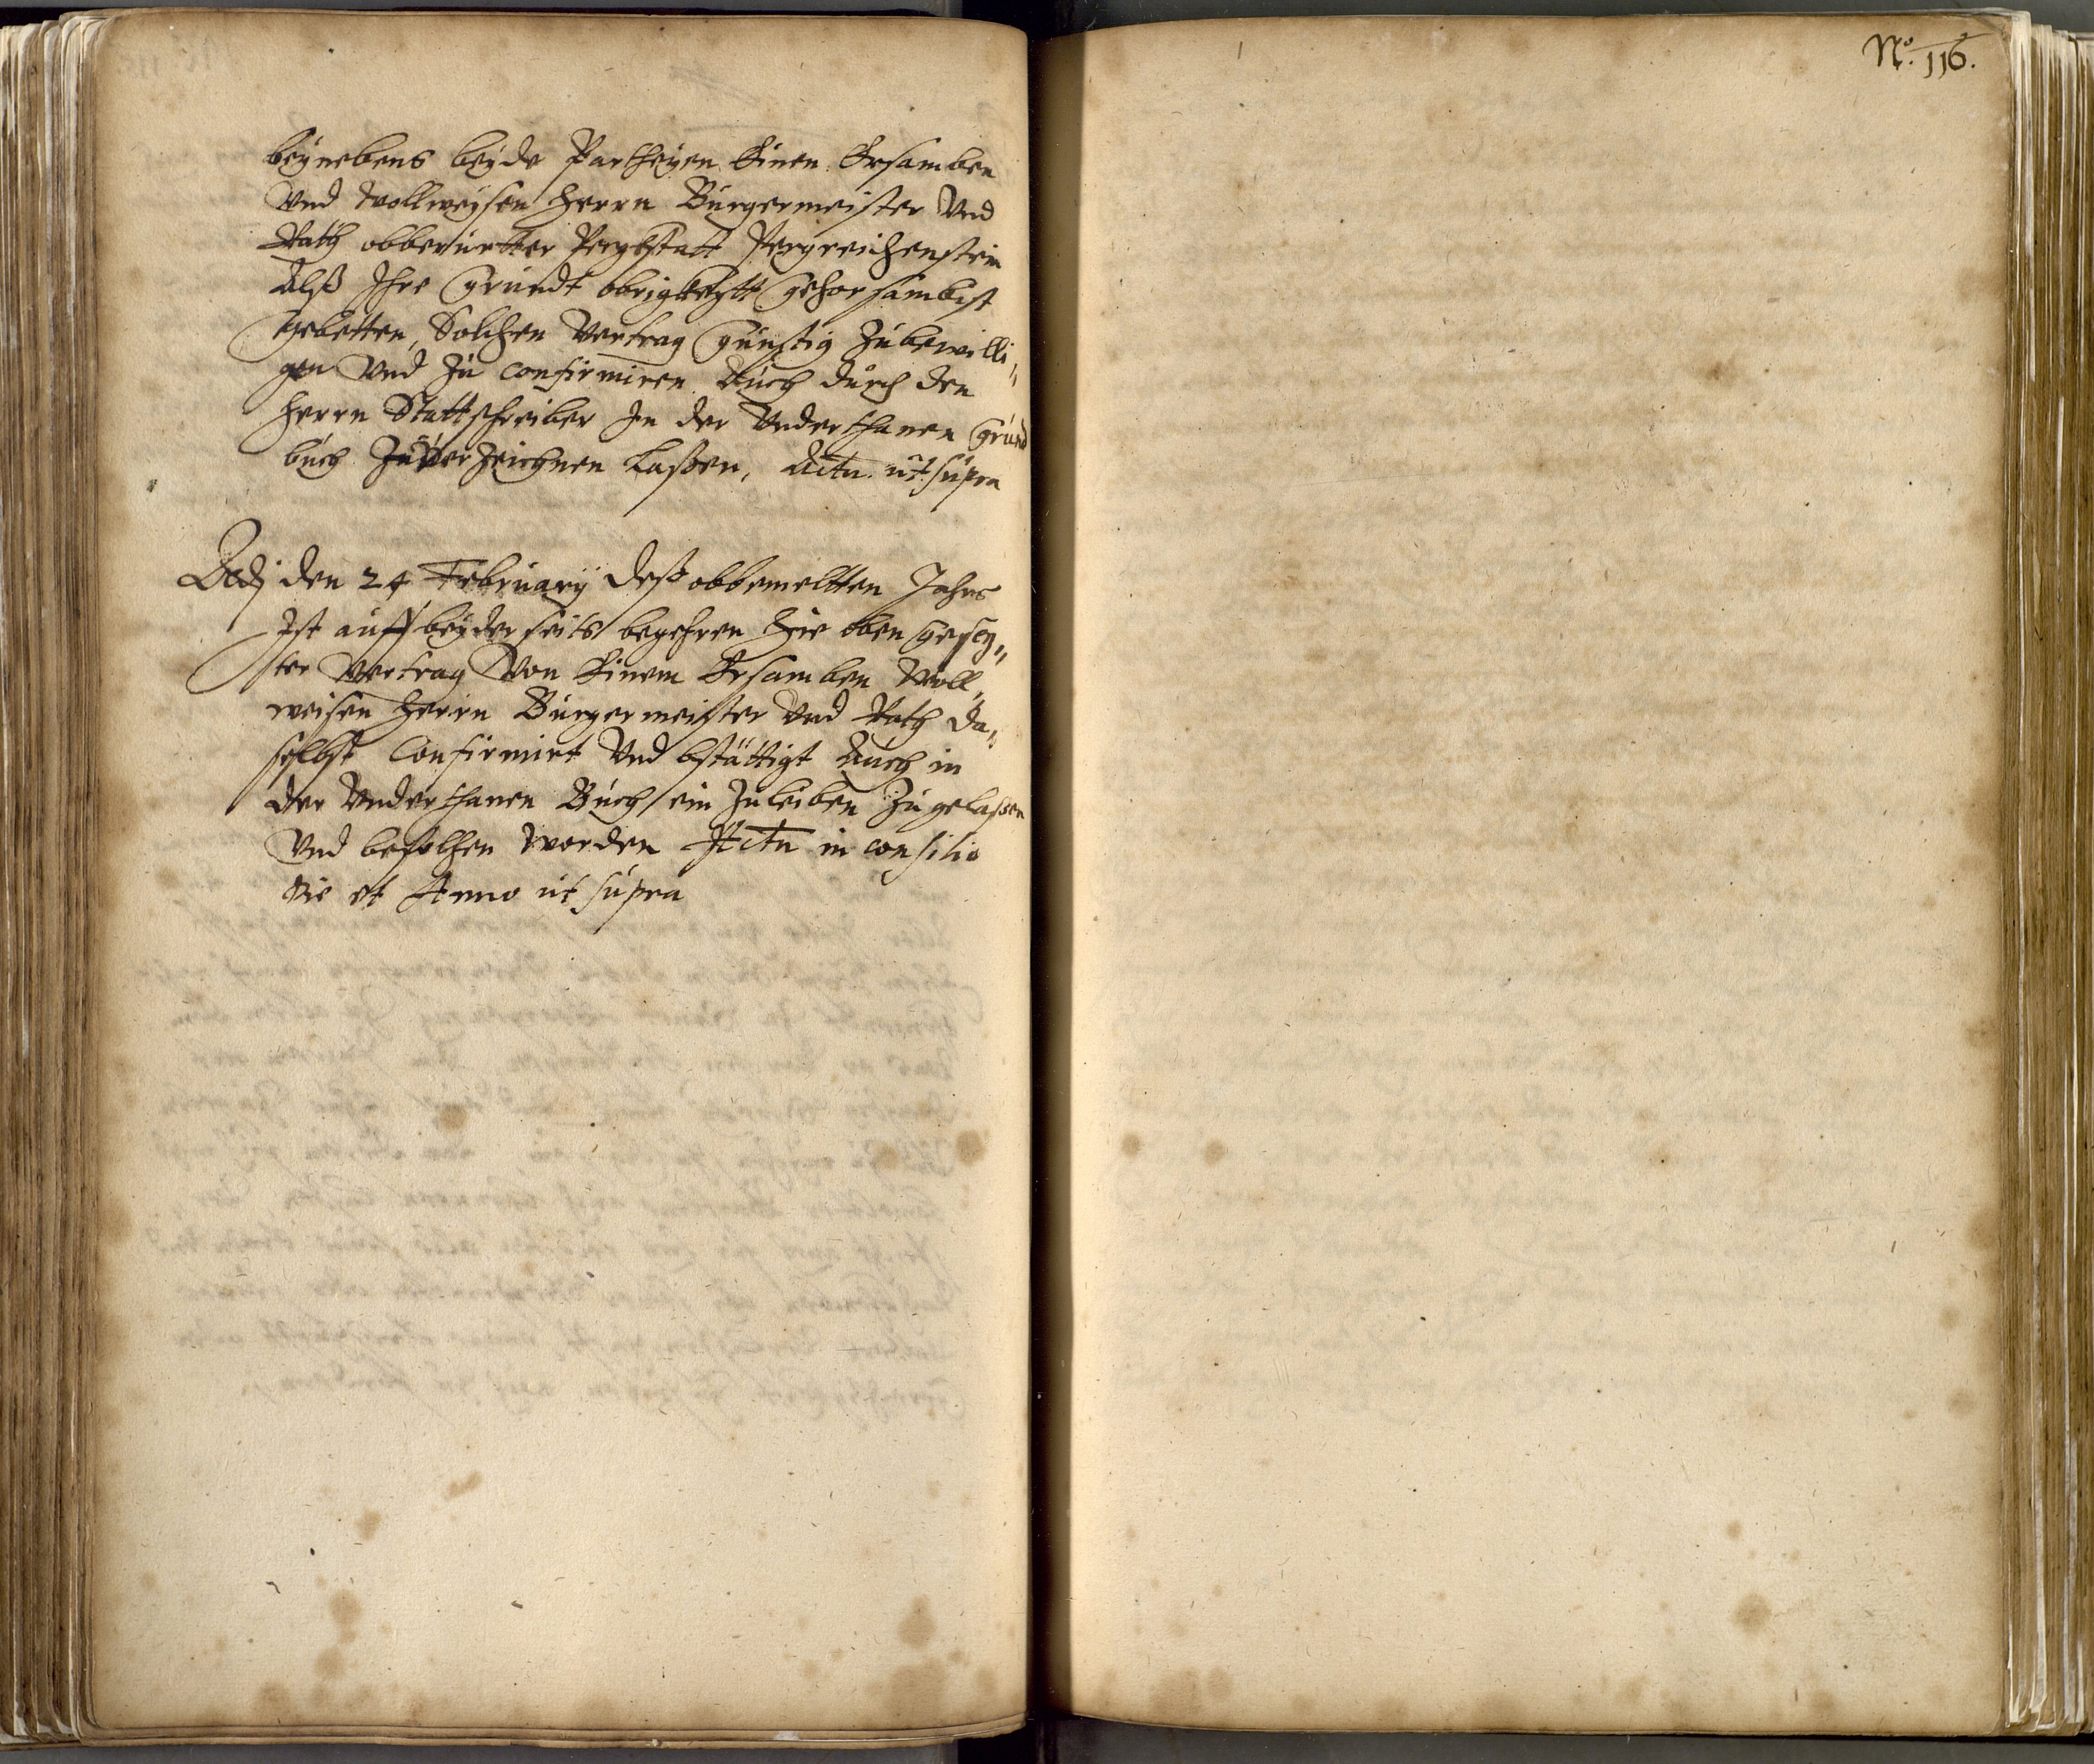 beÿnebens beÿde Partheÿen Einen Ersamben
Vnd Wollweÿsen Herrn Burgermeister Vnd
Rath obberürtter Pergkstatt Pergreichenstein
Alß Ihre Grundt obrigkeÿtt gehorsambist
gebetten, Solchen Vertrag günstig Zubewilli„
gen Vnd Zu confirmiren Auch durch den
Herrn Stattschreiber In der Vnderthanen Grund
buch Zu Verzeichnen Laßen, Actu. ut supra
Dedj den 24 Februarÿ deß obbemeltten Jahrs
Ist auff beÿderseits begehren hie oben gesez„
ter Vertrag Von Einem Ersamben Woll„
weisen Herrn Burgermeister Vnd Rath da„
selbst Confirmirt Vnd bstättigt Auch in
der Vnderthanen Buch ein Zuleiben Zugelaßen
Vnd befolhen worden Actu in consilio
die et Anno ut supra
Nº. 116.